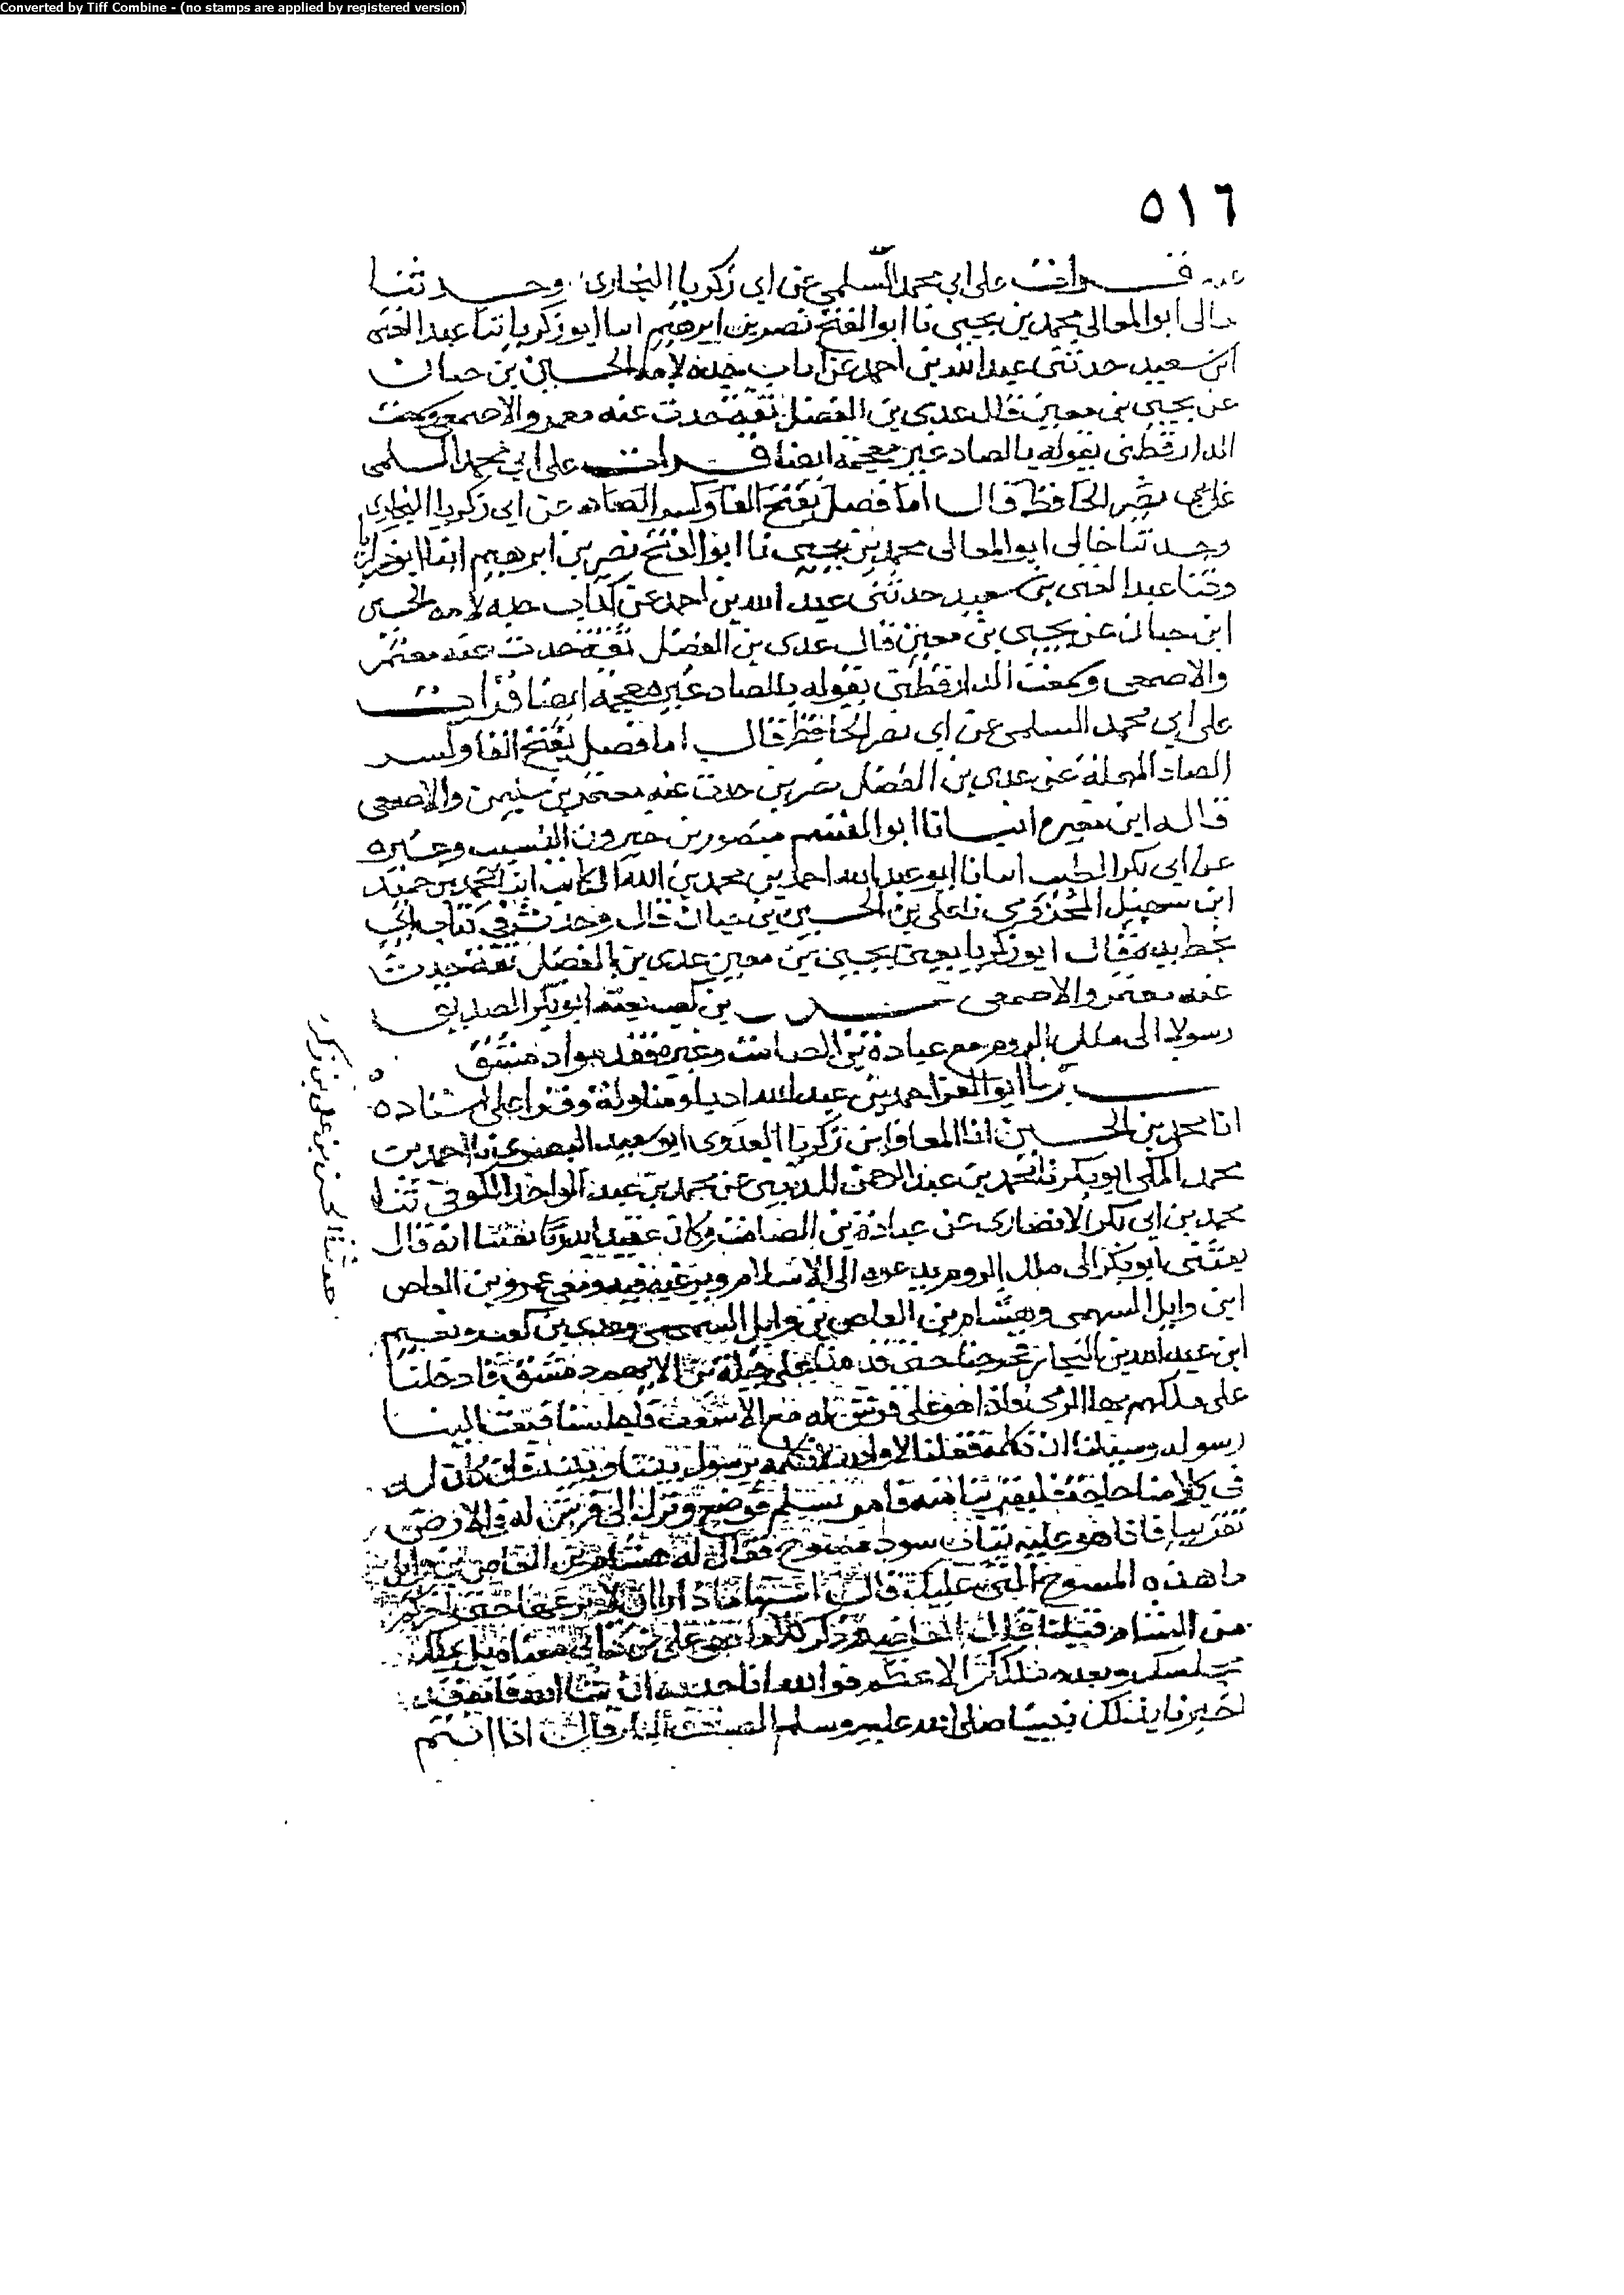 Converted by Tiff Combine - (no stamps are applied by registered version)
٥١٦
قرات على ابي محمد السلمي عن ابي زكريا البخاري وحدثنا
خالي ابو المعالي محمد بن يحيى نا ابو الفتح نصر بن ابرهيم انا ابو زكريا نا عبد الغني
ابن سعيد حدثني عبد الله بن احمد عن كتاب جده لامه الحسين بن حبان
عن يحيى بن معين قال عدي بن الفضل ثقة حدث عنه معمر والاصمعي وسمعت
الدارقطني يقوله بالصاد غير معجمة ايضا قرات على ابي محمد السلمي
عن ابي نصر الحافظ قال اما فصل بفتح الفا وكسر الصاد عن ابي زكريا البخاري
وحدثنا خالي ابو المعالي محمد بن يحيى نا ابو الفتح نصر بن ابرهيم انا ابو زكريا
وثنا عبد الغني بن سعيد حدثني عبد الله بن احمد عن كتاب جده لامه الحسين
ابن حبان عن يحيى بن معين قال عدي بن الفضل ثقة حدث عنه معتمر
والاصمعي وسمعت الدارقطني يقوله بالصاد غير معجمة ايضا قرات
على ابي محمد السلمي عن ابي نصر الحافظ قال اما فصل بفتح الفا وكسر
الصاد المهملة عن عدي بن الفضل بصري حدث عنه معتمر بن سليمن والاصمعي
قاله ابن معين انبانا ابو القسم منصور بن خيرون النسيب وغيره
عن ابي بكر الخطيب انبانا ابو عبد الله احمد بن محمد بن عبد الله الكاتب انا محمد بن حميد
ابن سهيل المخرمي نا علي بن الحسين بن حبان قال وجدت في كتاب ابي
بخط يده قال ابو زكريا يعني يحيى بن معين عدي بن الفضل ثقة حدث
عنه معتمر والاصمعي عدي بن كعب بعثه ابو بكر الصديق
رسولا الى ملك الروم مع عبادة بن الصامت وغيره فقدموا دمشق
اخبرنا ابو العز احمد بن عبيد الله اذنا ومناولة وقرا علي اسناده
انا محمد بن الحسين انا المعافا بن زكريا العدوي ابو سعيد البصري نا احمد بن
محمد المكي ابو بكر نا محمد بن عبد الرحمن المديني عن محمد بن عبد الواحد الكوفي ثنا
محمد بن ابي بكر الانصاري عن عبادة بن الصامت وكان عقبيا بدريا نقيبا انه قال
بعثني ابو بكر الى ملك الروم يدعوه الى الاسلام ويرغبه فيه ومعي عمرو بن العاص
ابن وايل السهمي وهشام بن العاص بن وايل السهمي وعدي بن كعب ونعيم
ابن عبد الله بن النحام فخرجنا حتى قدمنا على جبلة بن الايهم دمشق فادخلنا
على ملكهم بها الرومي فاذا هو على فرش له مع الاسقف فاجلسنا فبعث الينا
رسوله وسالنا ان نكلمه فقلنا لا والله لا نكلمه برسول بيننا وبينه فان كان له
في كلامنا حاجة فليقربنا منه فامر بسلم فوضع ونزل الى فرش له في الارض
فقربنا فاذا هو عليه ثياب سود مسوح فقال له هشام بن العاص بن وايل
ما هذه المسوح التي عليك قال لبستها ناذرا ان لا انزعها حتى اخرجكم
من الشام
مجلسك وبعده ملككم الاعظم فوالله لناخذنه ان شا الله فانه قد
اخبرنا بذلك نبينا صلى الله عليه وسلم الصادق البار قال اذا انتم
حدثنا الحسن بن علي بن زكريا